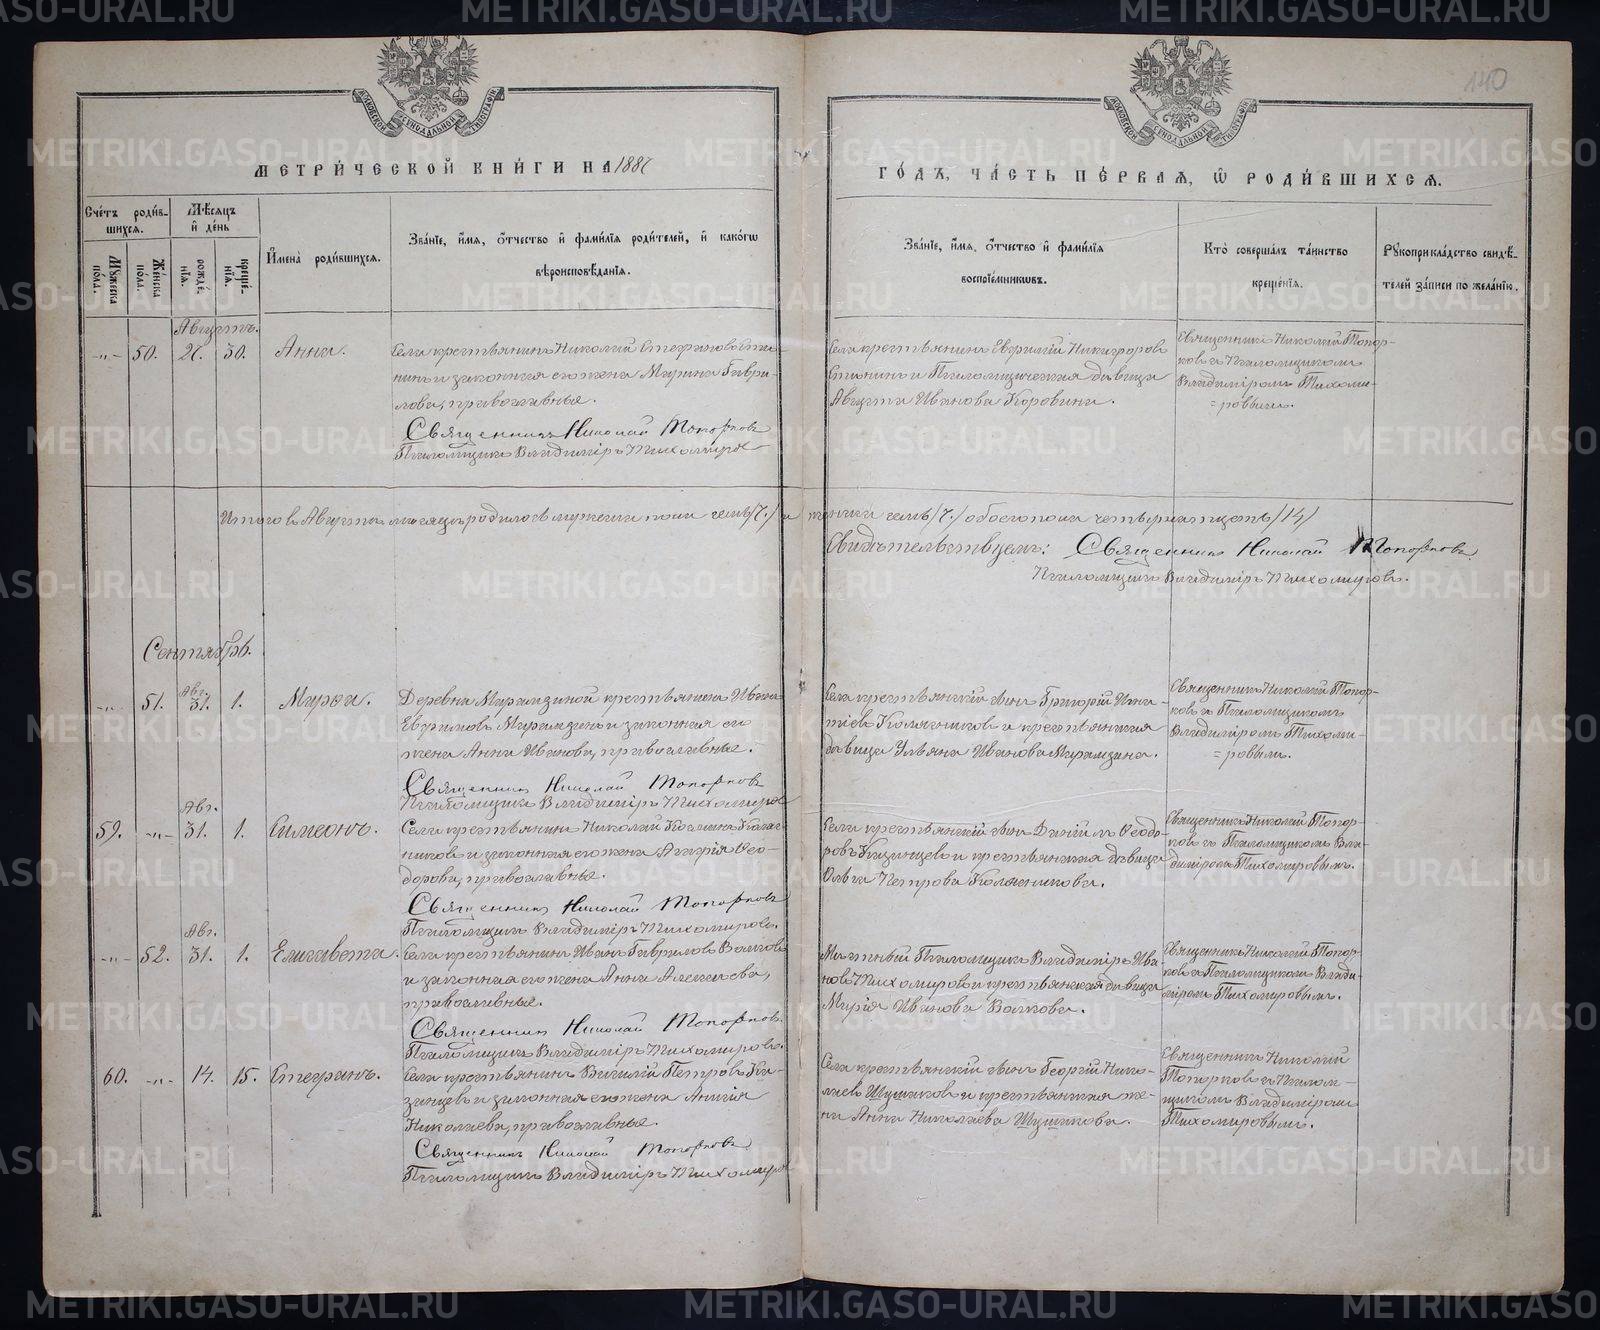 140
МЕТРИ́ЧЕСКОЙ КНИ́ГИ НА 1887
ГО́ДЪ, ЧА́СТЬ ПЕ́РВАЯ, Ѡ РОДИ́ВШИХСЯ.
Сче́тъ роди́в-
шихся.
Мꙋжеска по́ла.
Же́нска по́ла.
Мѣ́сяцъ
и҆ де́нь
рожде́нїя.
креще́нїя.
И҆мена̀ роди́вшихся.
Зва́нїе, и҆́мя, ѻ҆́тчество и҆ фами́лїя роди́телей, и҆ како́гѡ
вѣроисповѣ́данїя.
Зва́нїе, и҆́мя, ѻ҆́тчество и҆ фами́лїя
воспрїе́мниковъ.
Кто̀ соверша́лъ та́инство
креще́нїя.
Рꙋкоприкла́дство свидѣ́-
телей за́писи по жела́нїю.
Августъ.
-„- 50. 27. 30. Анна.
Села крестьянинъ Николай Стефановъ
и законная его жена Марина Гаври-
лова, православные.
Священникъ Николай Топорковъ
Псаломщикъ Владимiръ Тихомировъ
Села крестьянинъ Никифоровъ
и Псаломщическая дѣвица
Августа Иванова Коровина.
Священникъ Николай Топор-
ковъ съ Псаломщикомъ
Владимiромъ Тихоми-
=ровымъ.
Итого въ Августѣ мѣсяцѣ родилось мужеска пола семь /7./ и женска семь /7./ обоего пола четырнадцать /14/
Свидѣтельствуемъ: Священникъ Николай Топорковъ
Псаломщикъ Владимiръ Тихомировъ.
Сентябрь.
-„- 51. Авг. 31. 1. Мариа.
Деревни крестьянинъ Иванъ
и законная его
жена Анна Иванова, православные.
Священникъ Николай Топорковъ
Псаломщикъ Владимiръ Тихомировъ
Села крестьянскiй сынъ Григорiй Игна-
тiевъ и крестьянская
дѣвица Ульяна Иванова
Священникъ Николай Топор-
ковъ съ Псаломщикомъ
Владимiромъ Тихоми-
=ровымъ.
59. -„- Авг. 31. 1. Симеонъ.
Села крестьянинъ Николай Козминъ
и законная его жена Ѳео-
дорова, православные.
Священникъ Николай Топорковъ
Псаломщикъ Владимiръ Тихомировъ.
Села крестьянскiй сынъ Данiилъ Ѳеодо-
ровъ Казанцевъ и крестьянская дѣвица
Ольга Петрова
Священникъ Николай Топор-
ковъ съ Псаломщикомъ Вла-
димiромъ Тихомировымъ.
-„- 52. Авг. 31. 1. Елисавета.
Села крестьянинъ Иванъ Гавриловъ Волковъ
и законная его жена Анна Алексѣева,
православные.
Священникъ Николай Топорковъ
Псаломщикъ Владимiръ Тихомировъ.
Мѣстный Псаломщикъ Владимiръ Ива-
новъ Тихомировъ и крестьянская дѣвица
Марiя Иванова Волкова.
Священникъ Николай Топор-
ковъ съ Псаломщикомъ Влади-
мiромъ Тихомировымъ.
60. -„- 14. 15. Стефанъ.
Села крестьянинъ Василiй Петровъ Ка-
занцевъ и законная его жена
Николаева, православные.
Священникъ Николай Топорковъ
Псаломщикъ Владимiръ Тихомировъ
Села крестьянскiй сынъ Георгiй Нико-
лаевъ Шушаковъ и крестьянская же-
на Анна Николаева Шушакова.
Священникъ Николай
Топорковъ съ Псалом-
щикомъ Владимiромъ
Тихомировымъ.
METRIKI.GASO-URAL.RU